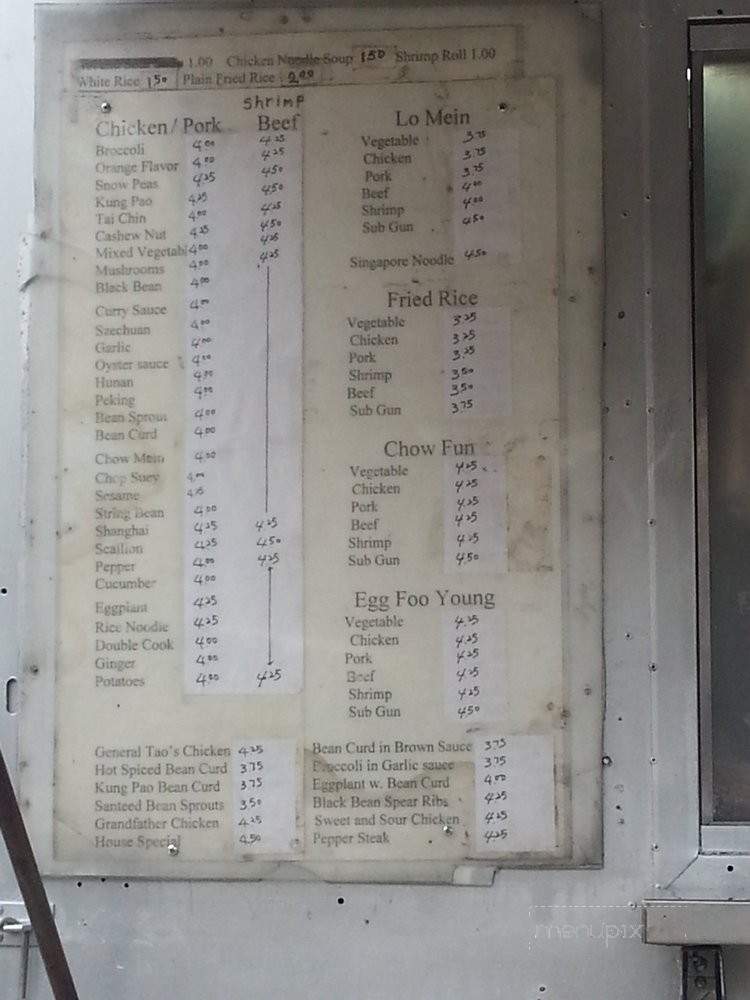 1.00 Chicken Noodle Soup 1.50 Shrimp Roll 1.00
White Rice 1.50 Plain Fried Rice 2.00
Shrimp
Chicken/ Pork Beef
Broccoli 4.00 4.25
Orange Flavor 4.00 4.25
Snow Peas 4.25 4.50
Kung Pao 4.25 4.50
Tai Chin 4.00 4.25
Cashew Nut 4.25 4.50
Mixed Vegetabl 4.00 4.25
Mushrooms 4.00 4.25
Black Bean 4.00
Curry Sauce 4.00
Szechuan 4.00
Garlic 4.00
Oyster sauce 4.00
Hunan 4.00
Peking 4.00
Bean Sprout 4.00
Bean Curd 4.00
Chow Mein 4.00
Chop Suey 4.00
Sesame 4.25
String Bean 4.00
Shanghai 4.25 4.25
Scallion 4.25 4.50
Pepper 4.25
Cucumber 4.00
Eggplant 4.25
Rice Noodle 4.25
Double Cook 4.00
Ginger 4.00
Potatoes 4.00 4.25
Lo Mein
Vegetable 3.75
Chicken 3.75
Pork 3.75
Beef 4.00
Shrimp 4.00
Sub Gun 4.50
Singapore Noodle 4.50
Fried Rice
Vegetable 3.25
Chicken 3.25
Pork 3.25
Shrimp 3.50
Beef 3.50
Sub Gun 3.75
Chow Fun
Vegetable 4.25
Chicken 4.25
Pork 4.25
Beef 4.25
Shrimp 4.25
Sub Gun 4.50
Egg Foo Young
Vegetable 4.25
Chicken 4.25
Pork 4.25
Beef 4.25
Shrimp 4.25
Sub Gun 4.50
General Tao's Chicken 4.25
Hot Spiced Bean Curd 3.75
Kung Pao Bean Curd 3.75
Santeed Bean Sprouts 3.50
Grandfather Chicken 4.25
House Special 4.50
Bean Curd in Brown Sauce 3.75
Broccoli in Garlic sauce 3.75
Eggplant w. Bean Curd 4.00
Black Bean Spear Ribs 4.25
Sweet and Sour Chicken 4.25
Pepper Steak 4.25
menupix